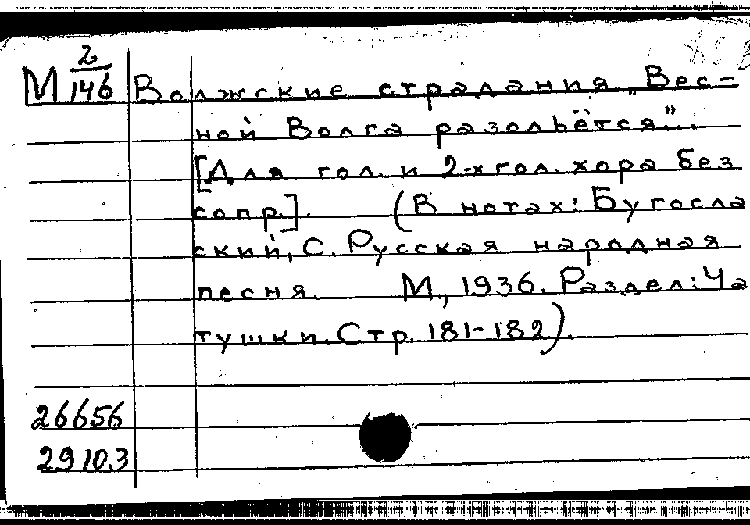 М 2/146 Волжские страдания „Вес-
ной Волга разольётся".
[Для гол. и 2-х гол. хора без
сопр.]. (В нотах: Бугосла
ский, С. Русская народная
песня. М., 1936. Раздел: Ча
тушки. Стр. 181-182).
26656
29103